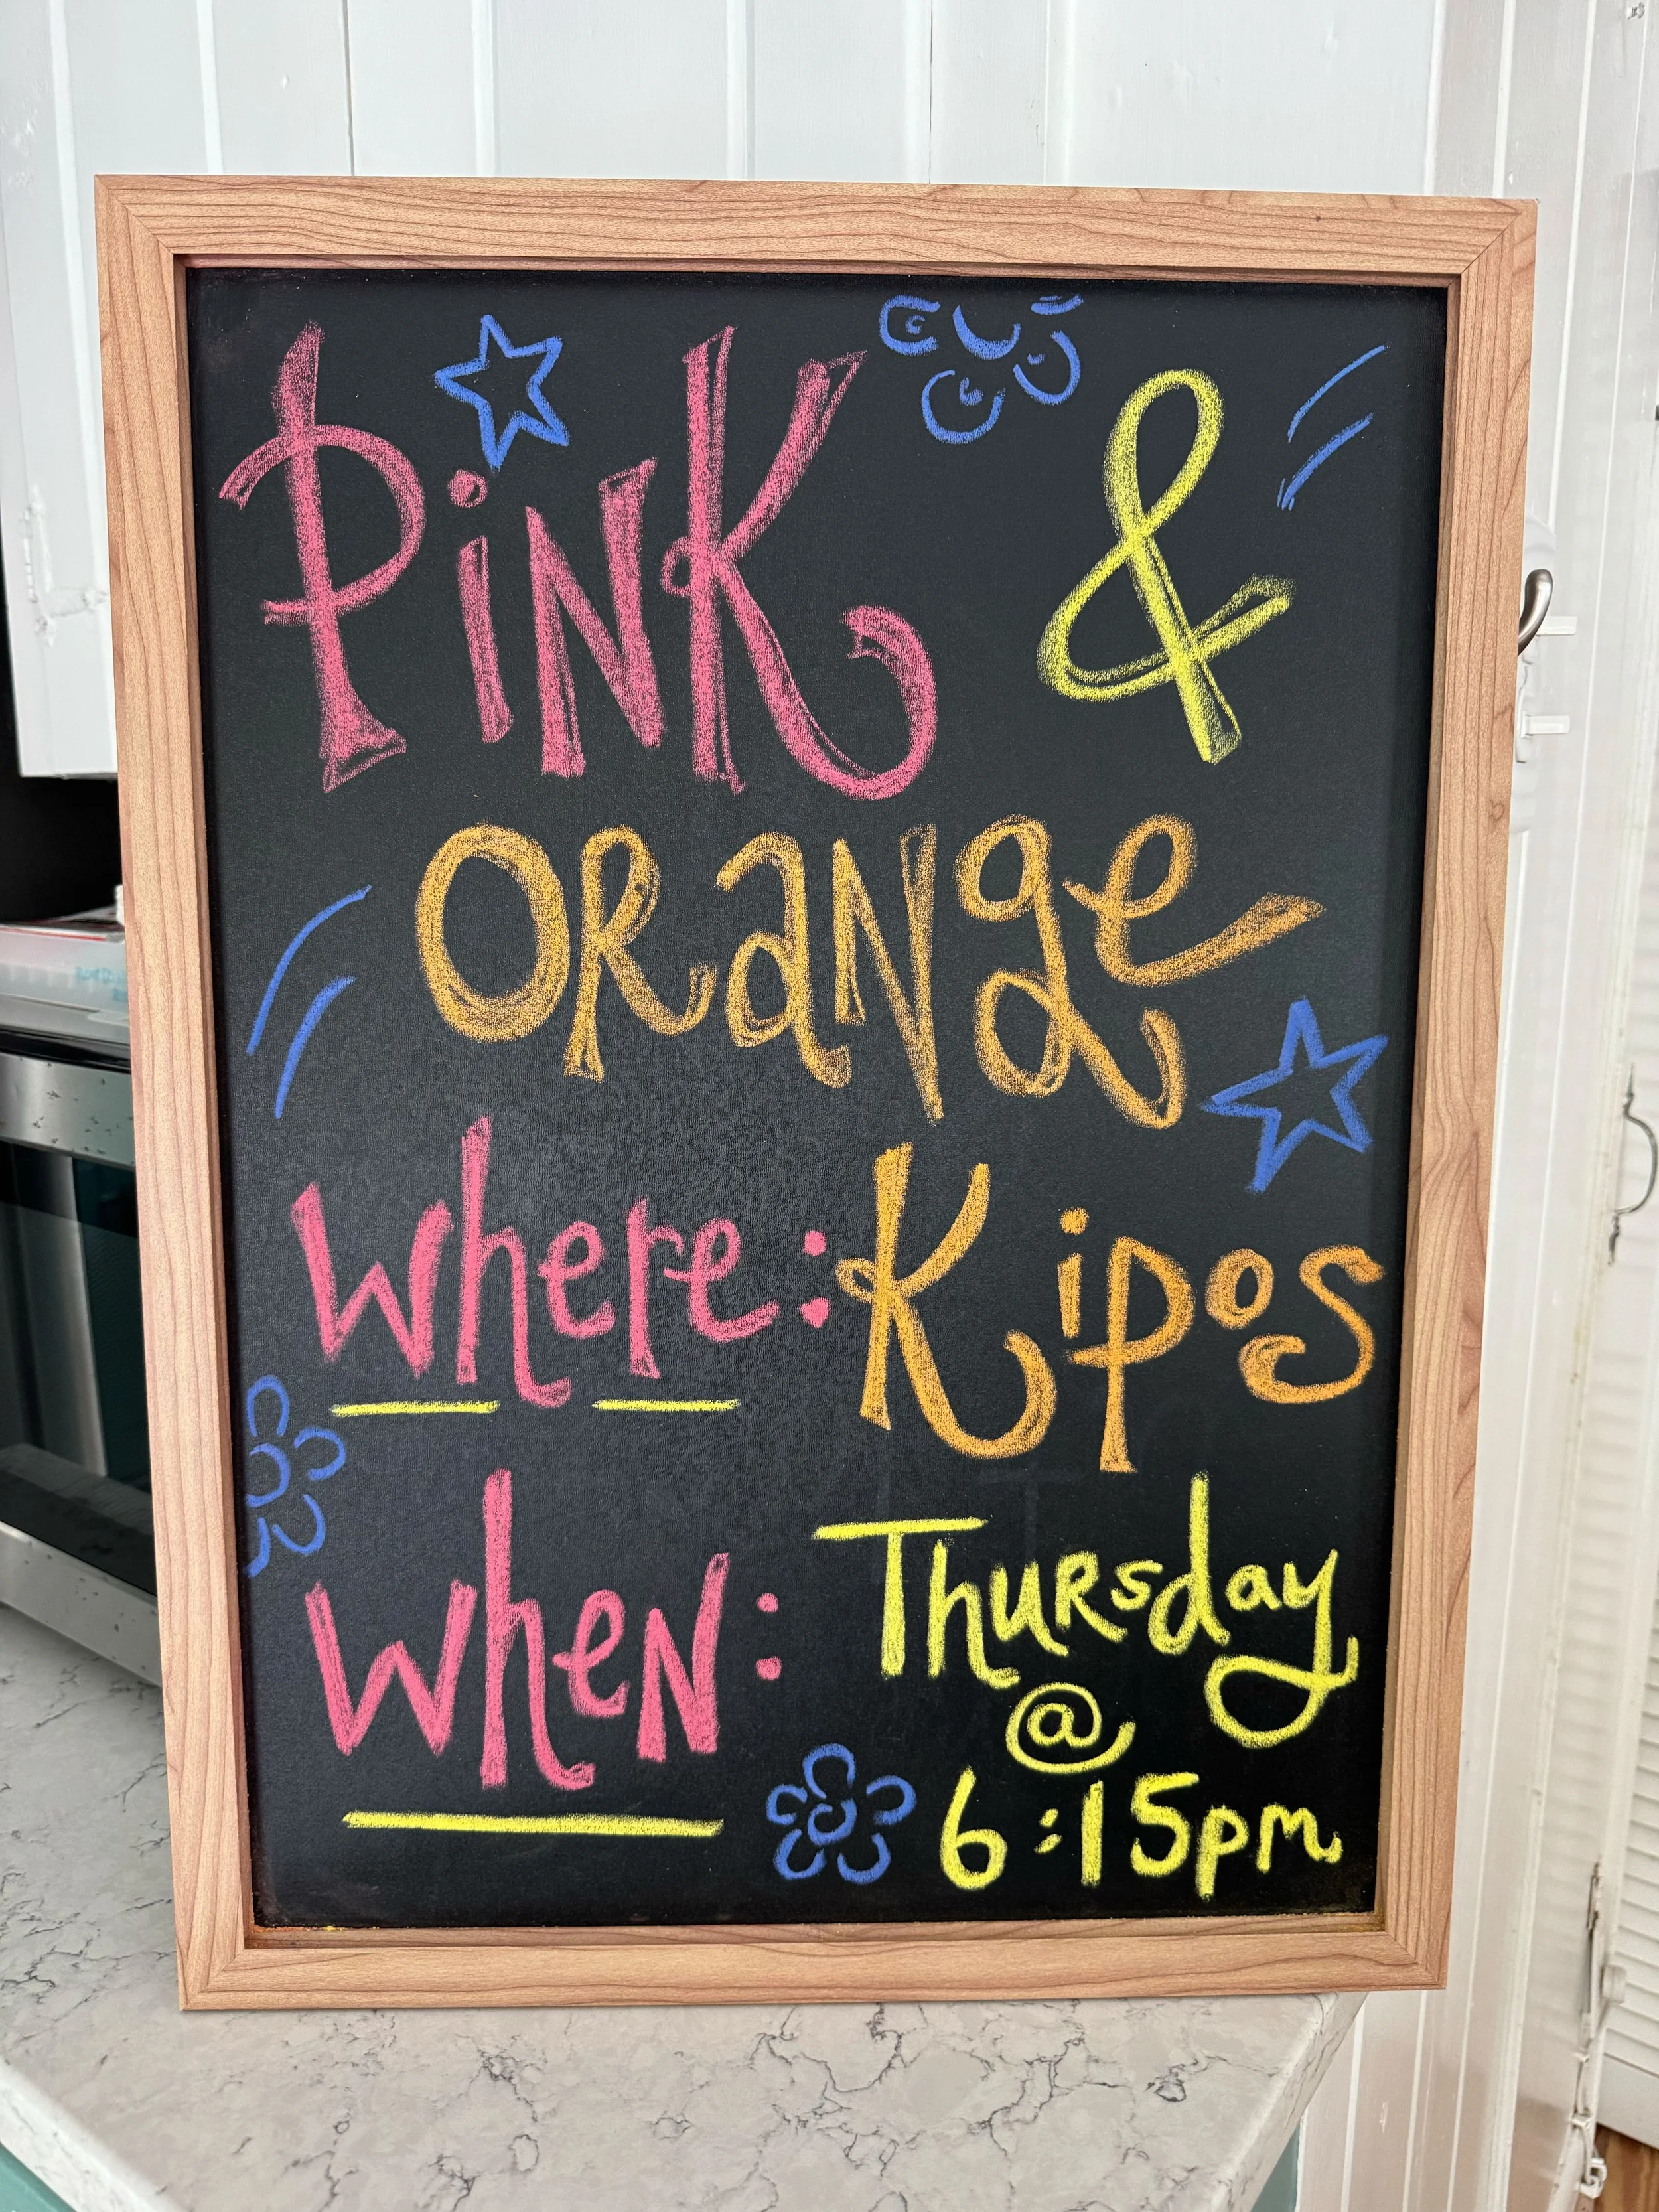 PiNK &
ORaNge
Where: Kipos
WheN: Thursday
@
6:15pm